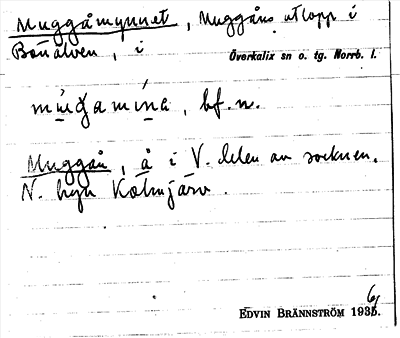 Muggåmynnet, Muggåns utlopp i
Bönälven, i Överkalix sn o. tg. Norrb. l.
bf. n.
Muggån, å i V. delen av socknen,
N. byn Kölmjärv.
EDVIN BRÄNNSTRÖM 1936.